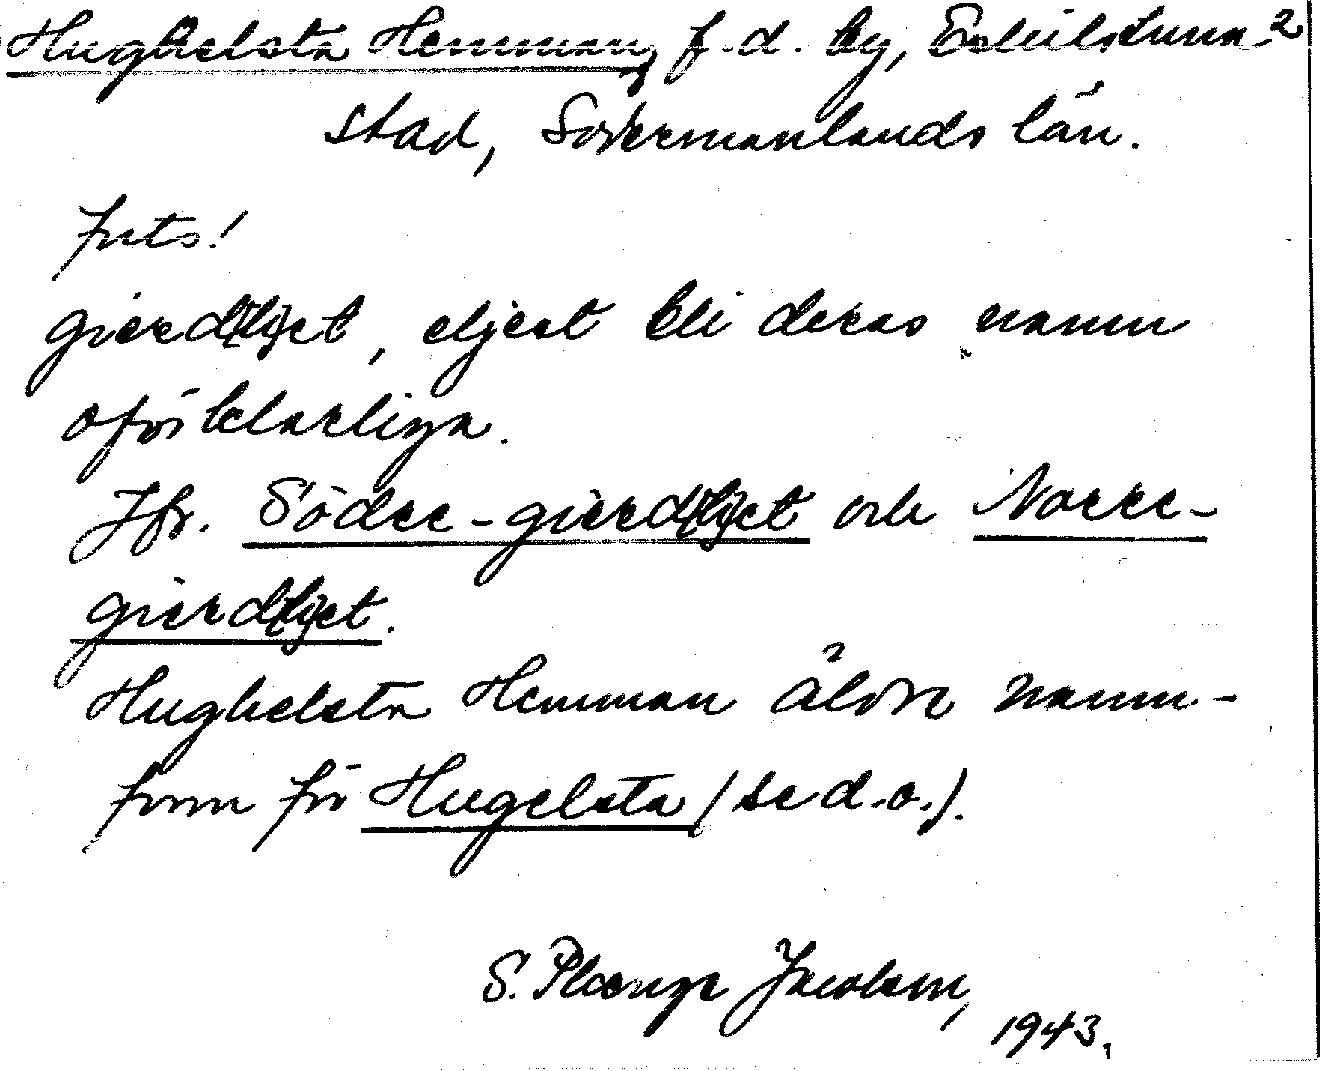 Hughelsta Hemman, f.d. by, Eskilstuna 2
stad, Södermanlands län.
forts!
gierdhet, eljest bli deras namn
oförklarliga.
Jfr. Söder-gierdhet och Norre-
gierdhet.
Hughelsta Hemman äldre namn-
form för Hugelsta (se d.o.).
S. Plænge Jacobson,
1943.